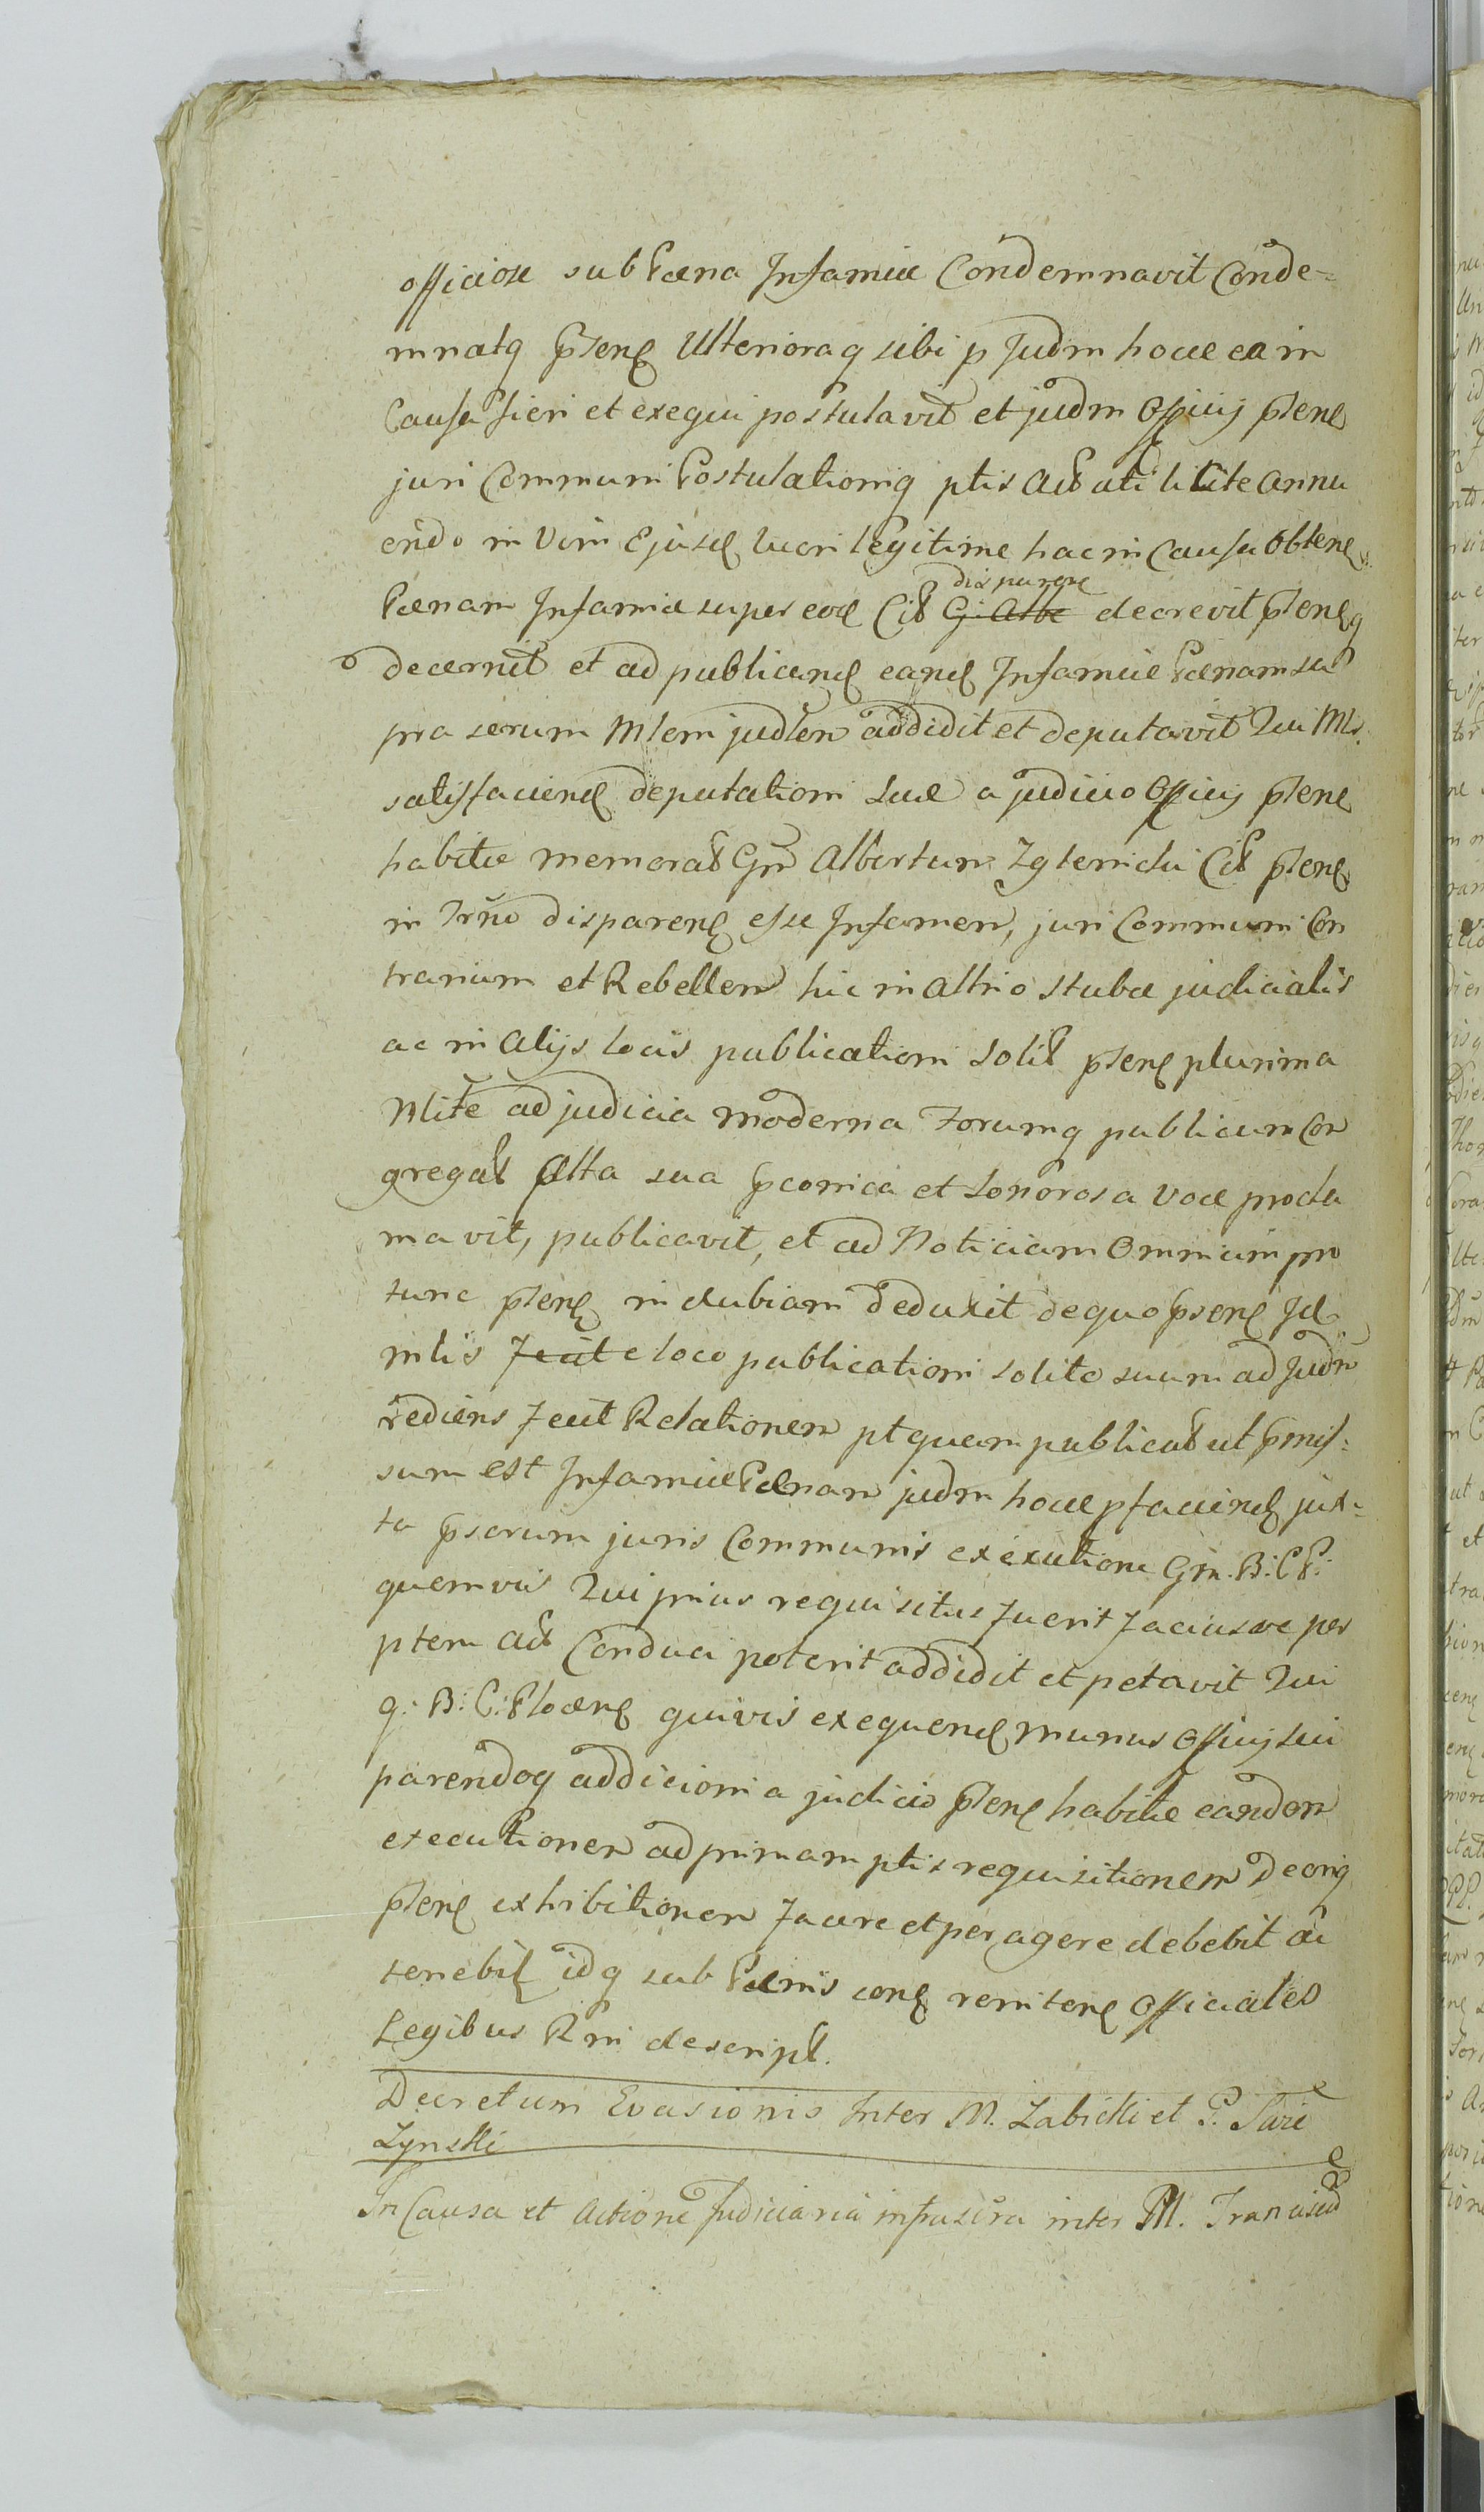 officiose sub Pæna Infamiæ Condemnavit Conde=
mnatq pñtenq Ulterioraq sibi p Judm hocce ea in
Causa fieri et exequi postulavit et judm Officij pñten
juri Communi Postulationiq ptis Act uti licite annu
endo in Vim Ejusd lucri legitime hac in Causa Obten
Pænam Infamiæ super eod Cit G. Albe disparen decrevit pñtenq
decernit et ad publicand eand Infamiæ Pænam su
pra serum Mlem judlem addidit et deputavit Qui Mls
satisfaciend deputationi suæ a judicio Officij pñten
habitæ memorat Gm Albertum Cit pñten
in Trno disparen esse Infamem, juri Communi Con
trarium et Rebellem hic in Atrio stubæ judicialis
ac in Alijs locis publicationi solit pñten plurima
Nlite ad judicia moderna Forumq publicum Con
gregat Alta sua pconica et sonorosa voce procla
mavit, publicavit, et ad Noticiam Omnium pro
tunc pñten indubiam deduxit de quo pñten Id
mlis fecit e loco publicationi solito suum ad Judm
rediens fecit Relationem ptquam publicat ut pmis=
sum est Infamiæ Pænam judm hocce pfaciend jux=
ta pscrum juris Communis executione Gm. B: C P:
quemvis Qui prius requisitus fuerit faciusve per
ptem Act Conduci poterit addidit et petavit Qui
g: B: C: Ploæn quivis exequend munus Officij sui
parendoq addicioni a judicio pñten habitæ eandem
executionem ad primam ptis requisitionem Decriq
pñten exhibitionem facere et peragere debebit ac
tenebit idq sub Pænis con renitenq Officiales
Legibus Rni descript.
Decretum Evasionis Inter M. Zabicki et P. Sure
Zynski
In Causa et Actione Judiciaria infrascra inter M. Francisc